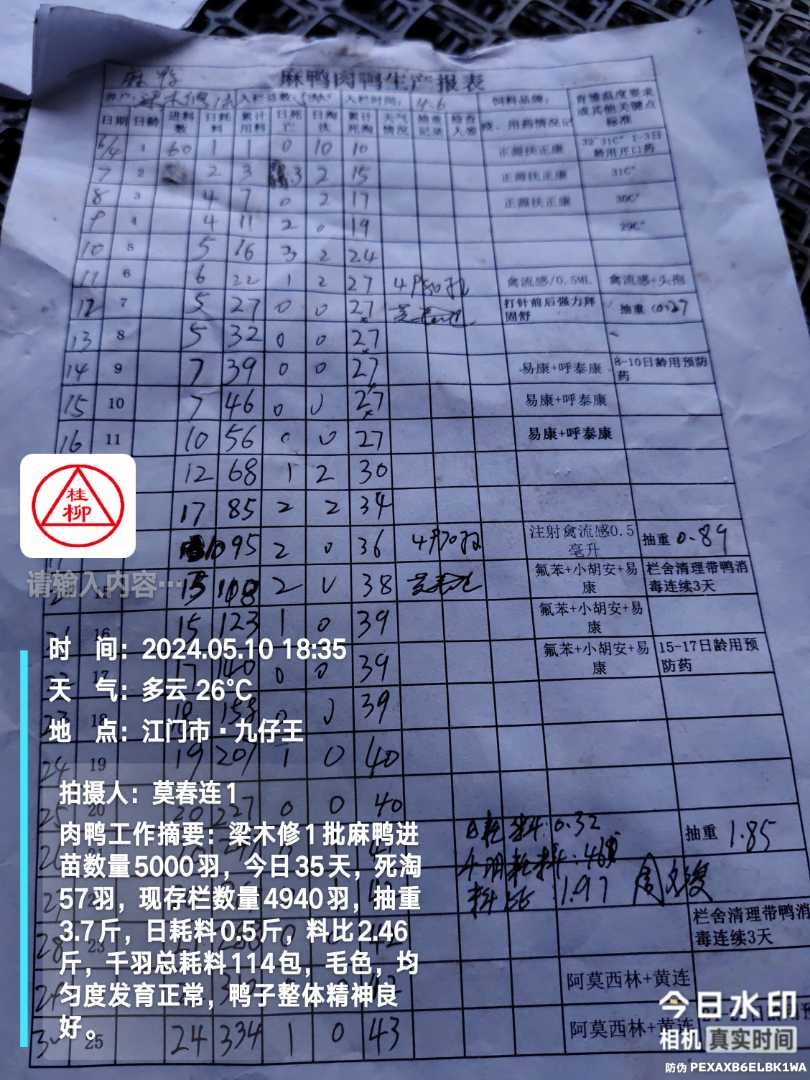 麻鸭
麻鸭肉鸭生产报表
养户:梁木修 入栏总数: 入栏时间:4.6 饲料品牌: 育雏温度要求或其他关键点标准
日期 日龄 进料数 日耗料 累计用料 日死亡 日淘汰 累计死淘 天气情况 检查记录 检查人签 疫、用药情况记
6/4 1 60 1 1 0 10 10 正源扶正康 32°31C° 1-3日龄用开口药
7 2 2 3 3 2 15 正源扶正康 31C°
8 3 4 7 0 2 17 正源扶正康 30C°
9 4 4 11 2 0 19 29C°
10 5 5 16 3 2 24
11 6 6 22 1 2 27 禽流感/0.5ML 禽流感+头孢
12 7 5 27 0 0 27 打针前后强力拜固舒 抽重 0.27
13 8 5 32 0 0 27
14 9 7 39 0 0 27 易康+呼泰康 8-10日龄用预防药
15 10 7 46 0 0 27 易康+呼泰康
16 11 10 56 0 0 27 易康+呼泰康
12 68 1 2 30
17 85 2 2 34
10 95 2 0 36 注射禽流感0.5毫升 抽重 0.89
15 108 2 0 38 氟苯+小胡安+易康 栏舍清理带鸭消毒连续3天
16 15 123 1 0 39 氟苯+小胡安+易康
17 140 0 0 39 氟苯+小胡安+易康 15-17日龄用预防药
18 18 158 0 0 39
24 19 19 207 1 0 40
20 20 227 0 0 40
日耗料:0.32 抽重 1.85
料比 1.97
栏舍清理带鸭消毒连续3天
阿莫西林+黄连
25 24 334 1 0 43 阿莫西林+黄连
桂柳
请输入内容…
时 间:2024.05.10 18:35
天 气:多云 26℃
地 点:江门市·九仔王
拍摄人:莫春连1
肉鸭工作摘要:梁木修1批麻鸭进
苗数量5000羽,今日35天,死淘
57羽,现存栏数量4940羽,抽重
3.7斤,日耗料0.5斤,料比2.46
斤,千羽总耗料114包,毛色,均
匀度发育正常,鸭子整体精神良
好。
今日水印
相机 真实时间
防伪 PEXAXB6ELBK1WA